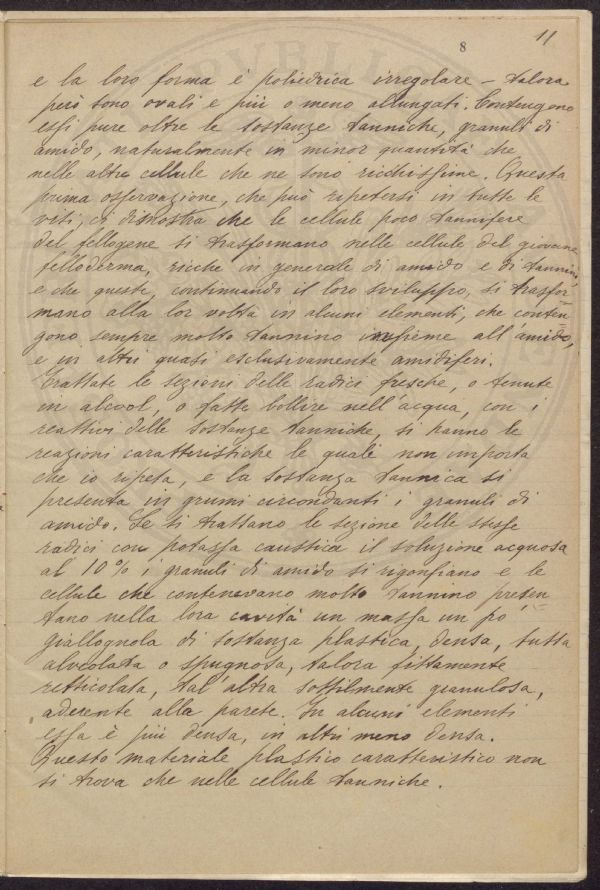 8
11
e la loro forma è poliedrica irregolare – talora
però sono ovali e più o meno allungati. Contengono
essi pure oltre le sostanze tanniche, granuli di
amido, naturalmente in minor quantità che
nelle altre cellule che ne sono ricchissime. Questa
prima osservazione, che può ripetersi in tutte le
viti, ci dimostra che le cellule poco tannifere
del fellogene si trasformano nelle cellule del giovane
felloderma, ricche in generale di amido e di tannini,
e che queste, continuando il loro sviluppo, si trasfor-
mano alla lor volta in alcuni elementi, che conten-
gono sempre molto tannino insieme all'amido,
e in altri quasi esclusivamente amidiferi.
Trattate le sezioni delle radici fresche, o tenute
in alcool, o fatte bollire nell'acqua, con i
reattivi delle sostanze tanniche, si hanno le
reazioni caratteristiche le quali non importa
che io ripeta, e la sostanza tannica si
presenta in grumi circondanti i granuli di
amido. Se si trattano le sezione delle stesse
radici con potassa caustica il soluzione acquosa
al 10% i granuli di amido si rigonfiano e le
cellule che contenevano molto tannino presen-
tano nella lora cavità un massa un po'
giallognola di sostanza plastica, densa, tutta
alveolata o spugnosa, talora fittamente
retticolata, tal'altra sottilmente granulosa,
aderente alla parete. In alcuni elementi
essa è più densa, in altri meno densa.
Questo materiale plastico caratteristico non
si trova che nelle cellule tanniche.